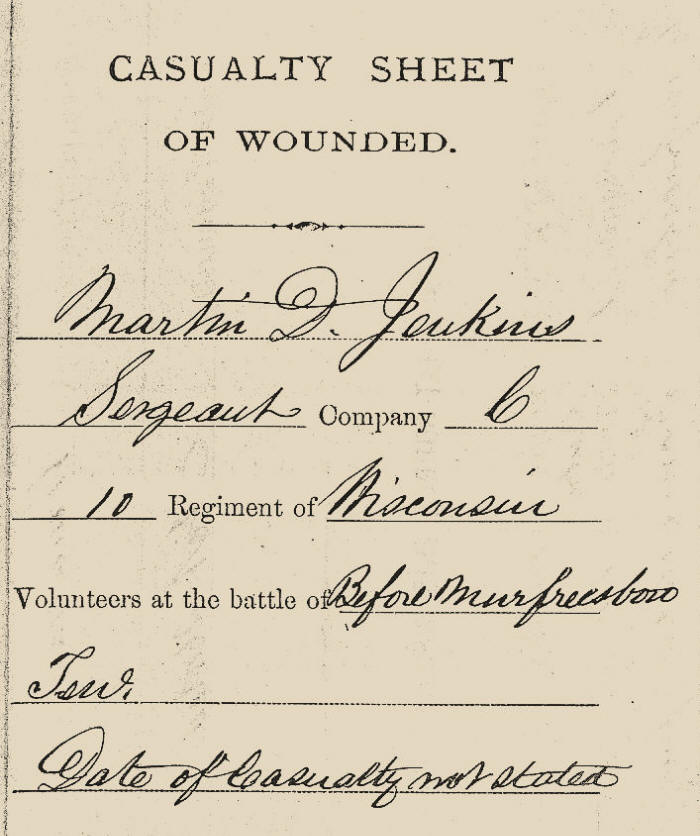 CASUALTY SHEET
OF WOUNDED.
Martin D. Jenkins
Sergeant Company C
10 Regiment of Wisconsin
Volunteers at the battle of Before Murfreesboro
Ten.
Date of Casualty not stated